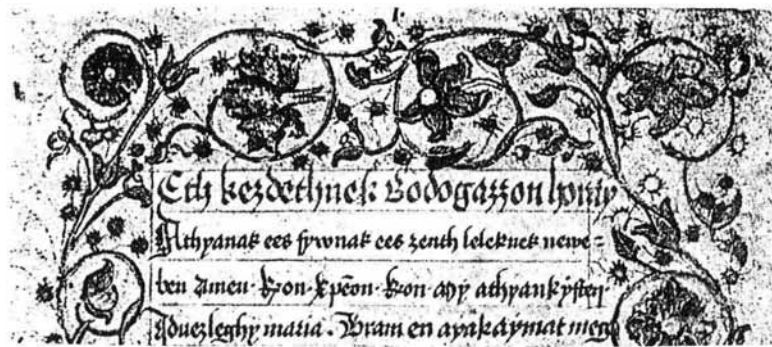 Eth kezdethnek Bodogazzon
Athyanak ees fywnak ees zenth leleknek newe=
ben Amen · kron · xpēon · kron · my athyank ysten
Iduezleghy maria · Wram en ayakaymat meg